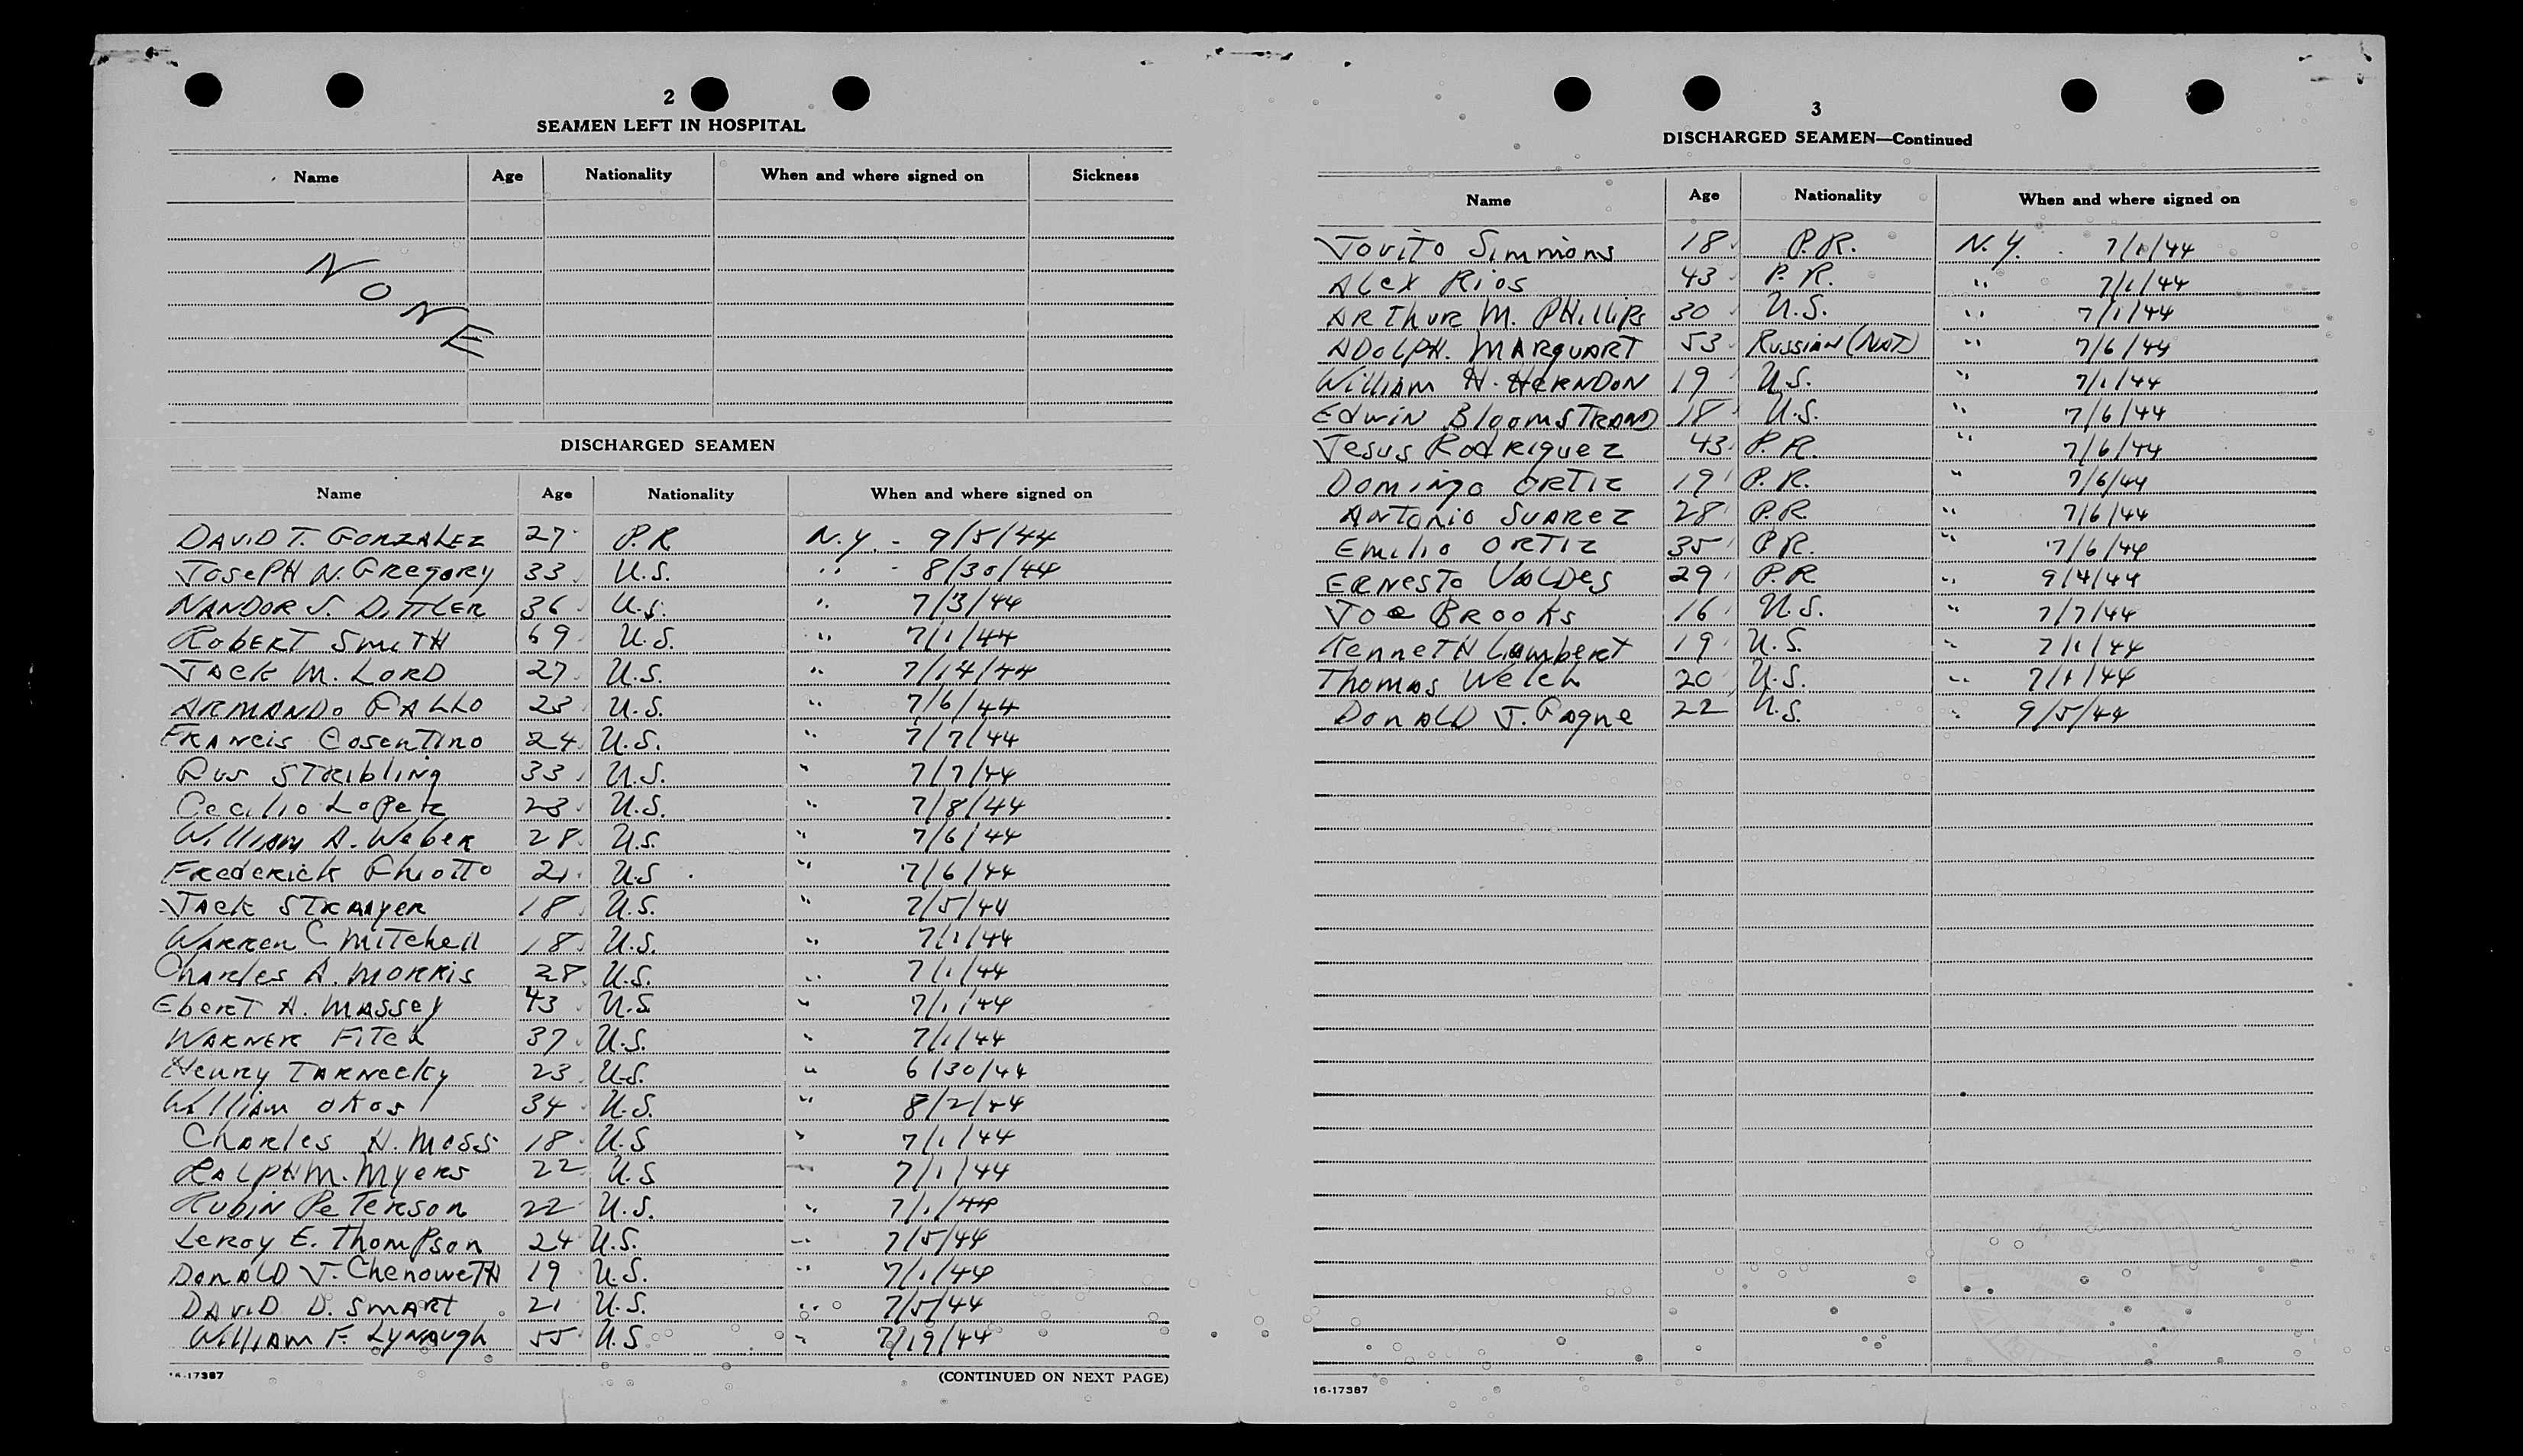 2
SEAMEN LEFT IN HOSPITAL
Name Age Nationality When and where signed on Sickness
NONE
DISCHARGED SEAMEN
Name Age Nationality When and where signed on
DAVID T. GONZALEZ 27 P.R. N.Y. - 9/5/44
JOSEPH N. GREGORY 33 U.S. " - 8/30/44
NANDOR S. DITTLER 36 U.S. " 7/3/44
ROBERT SMITH 69 U.S. " 7/1/44
JACK M. LORD 27 U.S. " 7/14/44
ARMANDO GALLO 23 U.S. " 7/6/44
FRANCIS COSENTINO 24 U.S. " 7/7/44
GUS STRIBLING 33 U.S. " 7/7/44
Cecilio Lopez 23 U.S. " 7/8/44
William A. Weber 28 U.S. " 7/6/44
Frederick Ghiotto 21 U.S. " 7/6/44
Jack STRAAYER 18 U.S. " 7/5/44
Warren C Mitchell 18 U.S. " 7/1/44
Charles A. Morris 28 U.S. " 7/1/44
Ebert A. Massey 43 U.S. " 7/1/44
WARNER Fitch 37 U.S. " 7/1/44
Henry TARNECKY 23 U.S. " 6/30/44
William Okos 34 U.S. " 8/2/44
Charles H. Moss 18 U.S " 7/1/44
RALPH M. Myers 22 U.S " 7/1/44
Rubin Peterson 22 U.S. " 7/1/44
Leroy E. Thompson 24 U.S. " 7/5/44
DONALD J. Chenoweth 19 U.S. " 7/1/44
DAVID D. SMART 21 U.S. " 7/5/44
William F. Lynaugh 55 U.S " 7/19/44
16-17387 (CONTINUED ON NEXT PAGE)
3
DISCHARGED SEAMEN—Continued
Name Age Nationality When and where signed on
Jovito Simmons 18 P.R. N.Y. - 7/1/44
Alex Rios 43 P.R. " 7/1/44
ARTHUR M. PHILLIPS 30 U.S. " 7/1/44
ADOLPH. MARQUART 53 RUSSIAN (NAT) " 7/6/44
William H. HERNDON 19 U.S. " 7/1/44
Edwin BloomSTRAND 18 U.S. " 7/6/44
Jesus Rodriquez 43 P.R. " 7/6/44
Domingo ORTIZ 19 P.R. " 7/6/44
Antonio SUAREZ 28 P.R. " 7/6/44
Emilio ORTIZ 35 P.R. " 7/6/44
ERNESTO VALDES 29 P.R " 9/4/44
Joe BROOKS 16 U.S. " 7/7/44
Kenneth Lambert 19 U.S. " 7/1/44
Thomas Welch 20 U.S. " 7/1/44
DONALD J. Gagne 22 U.S. " 9/5/44
16-17387